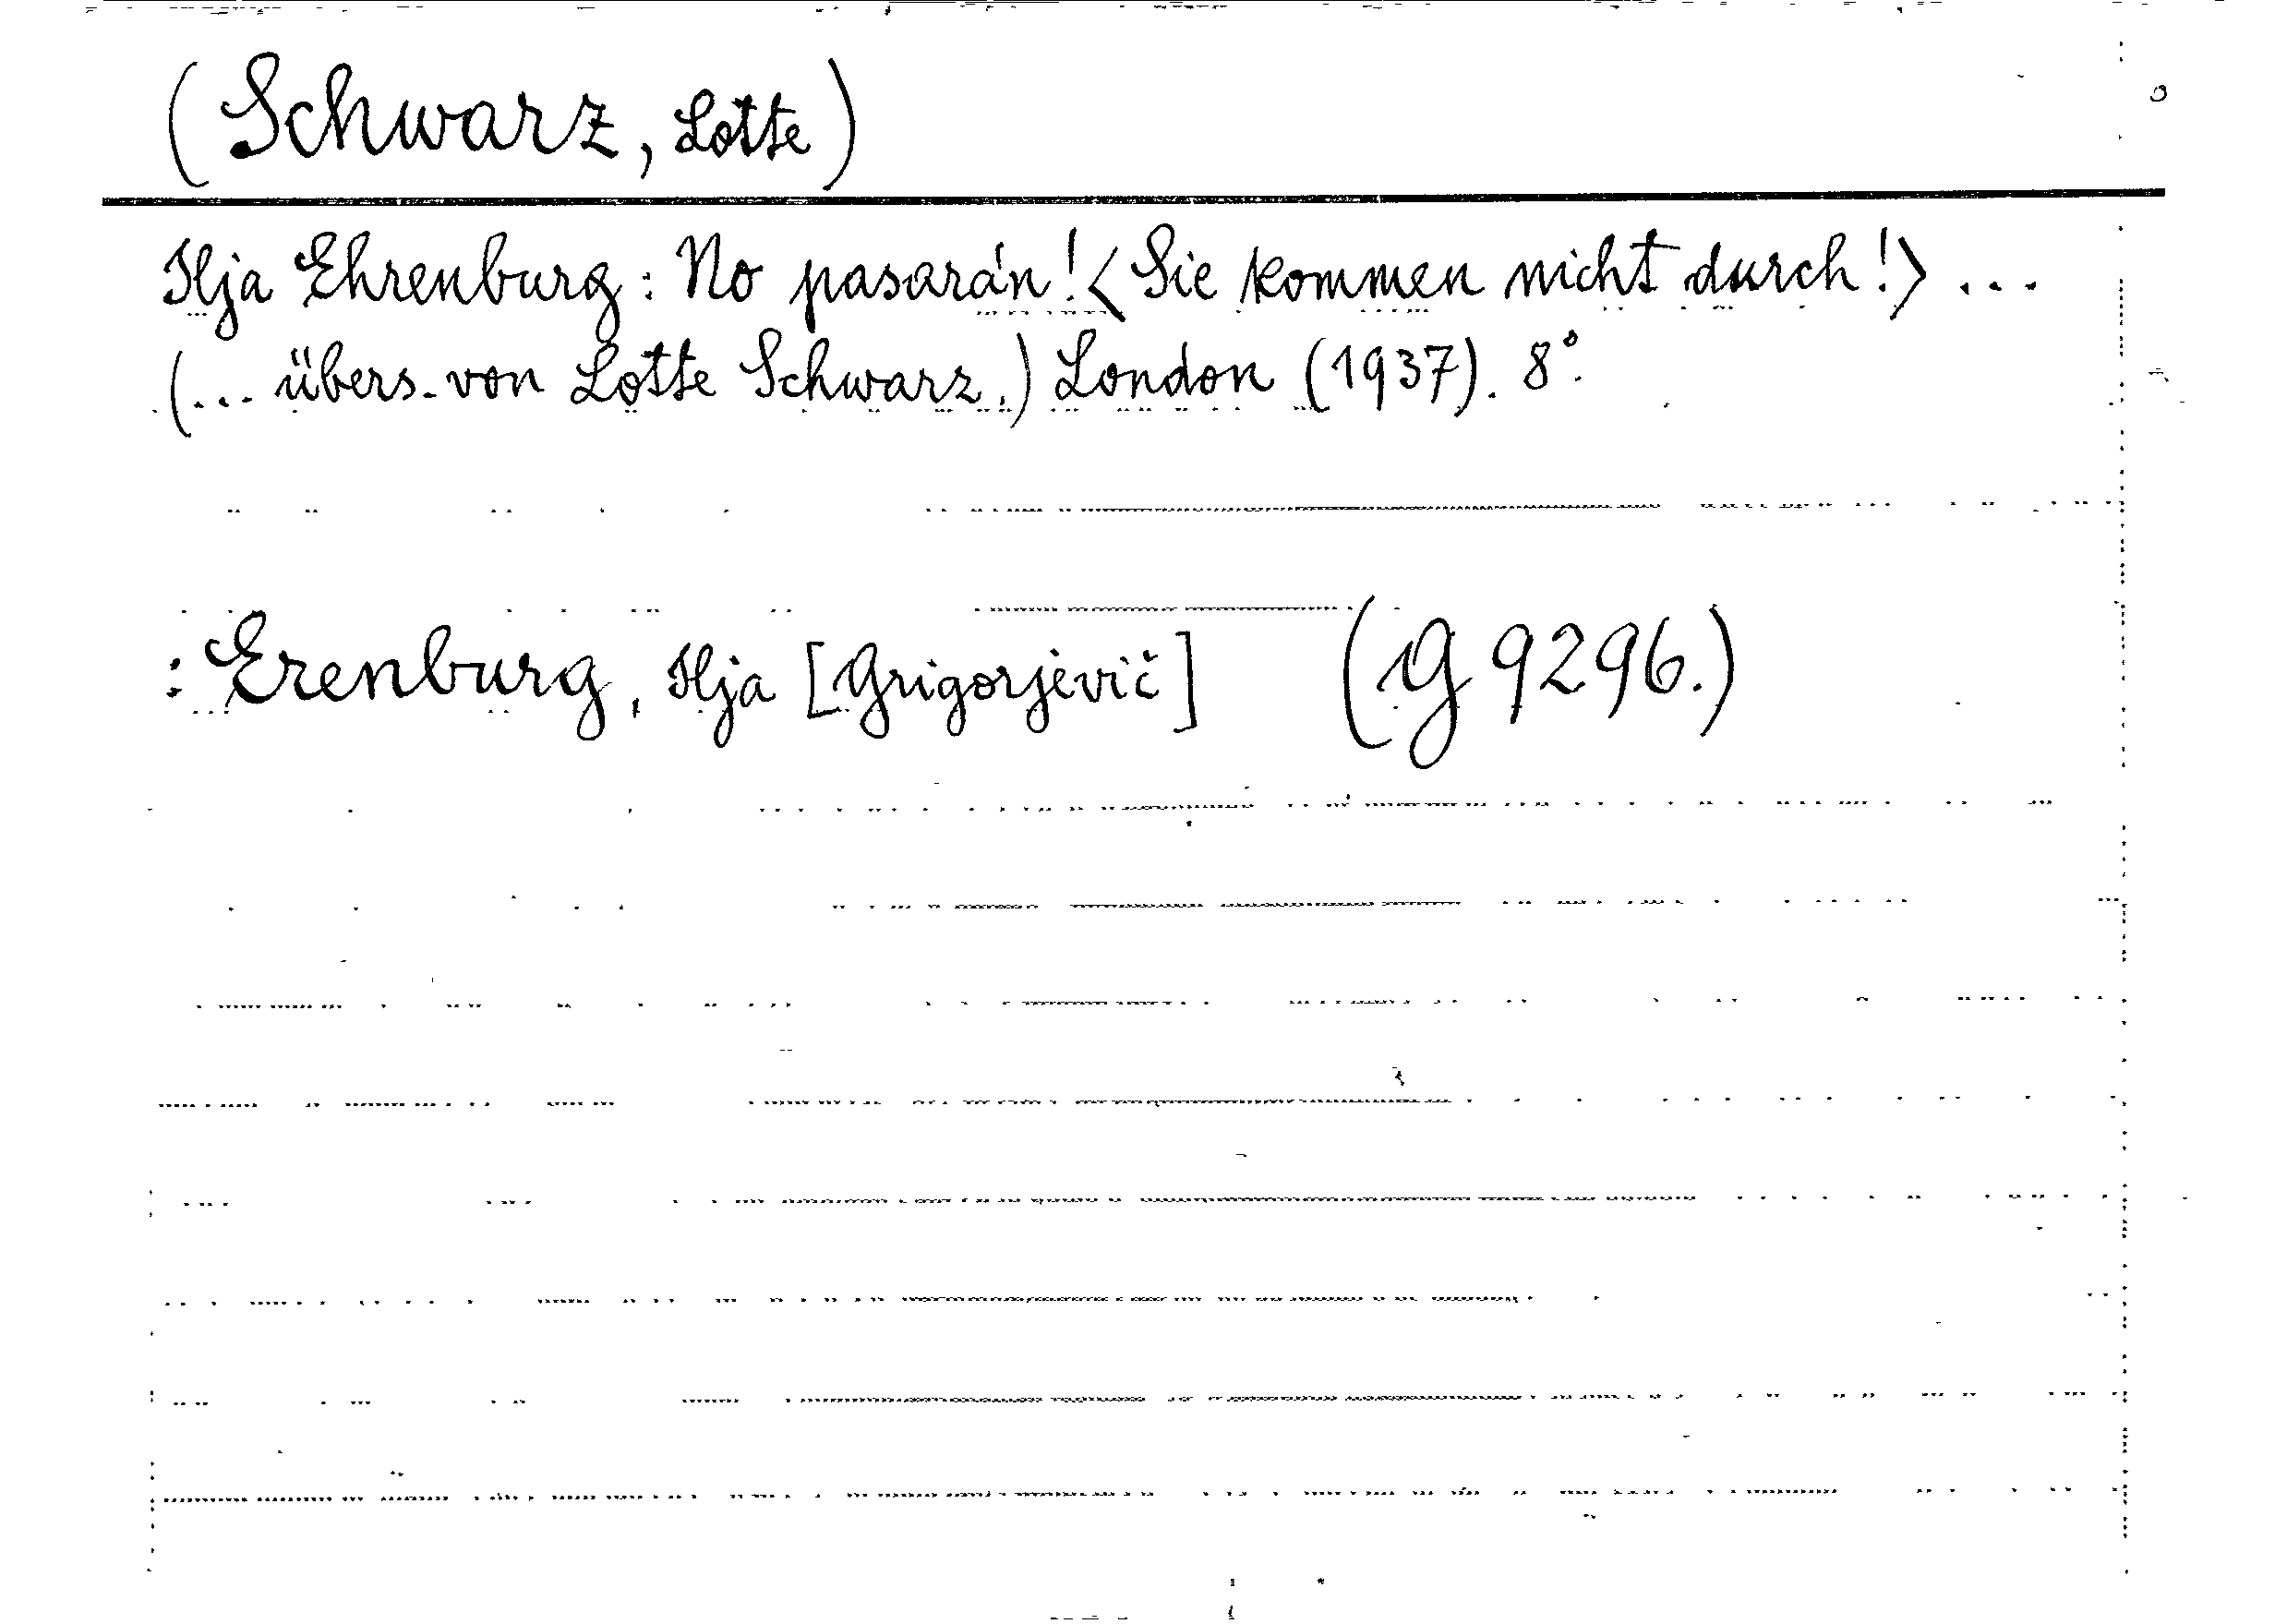 (Schwarz, Lotte)
Ilja Ehrenburg: No pasarán! <Sie kommen nicht durch!> ...
(... übers. von Lotte Schwarz.) London (1937). 8°.
: Erenburg, Ilja [Grigorjevič] (G 9296.)